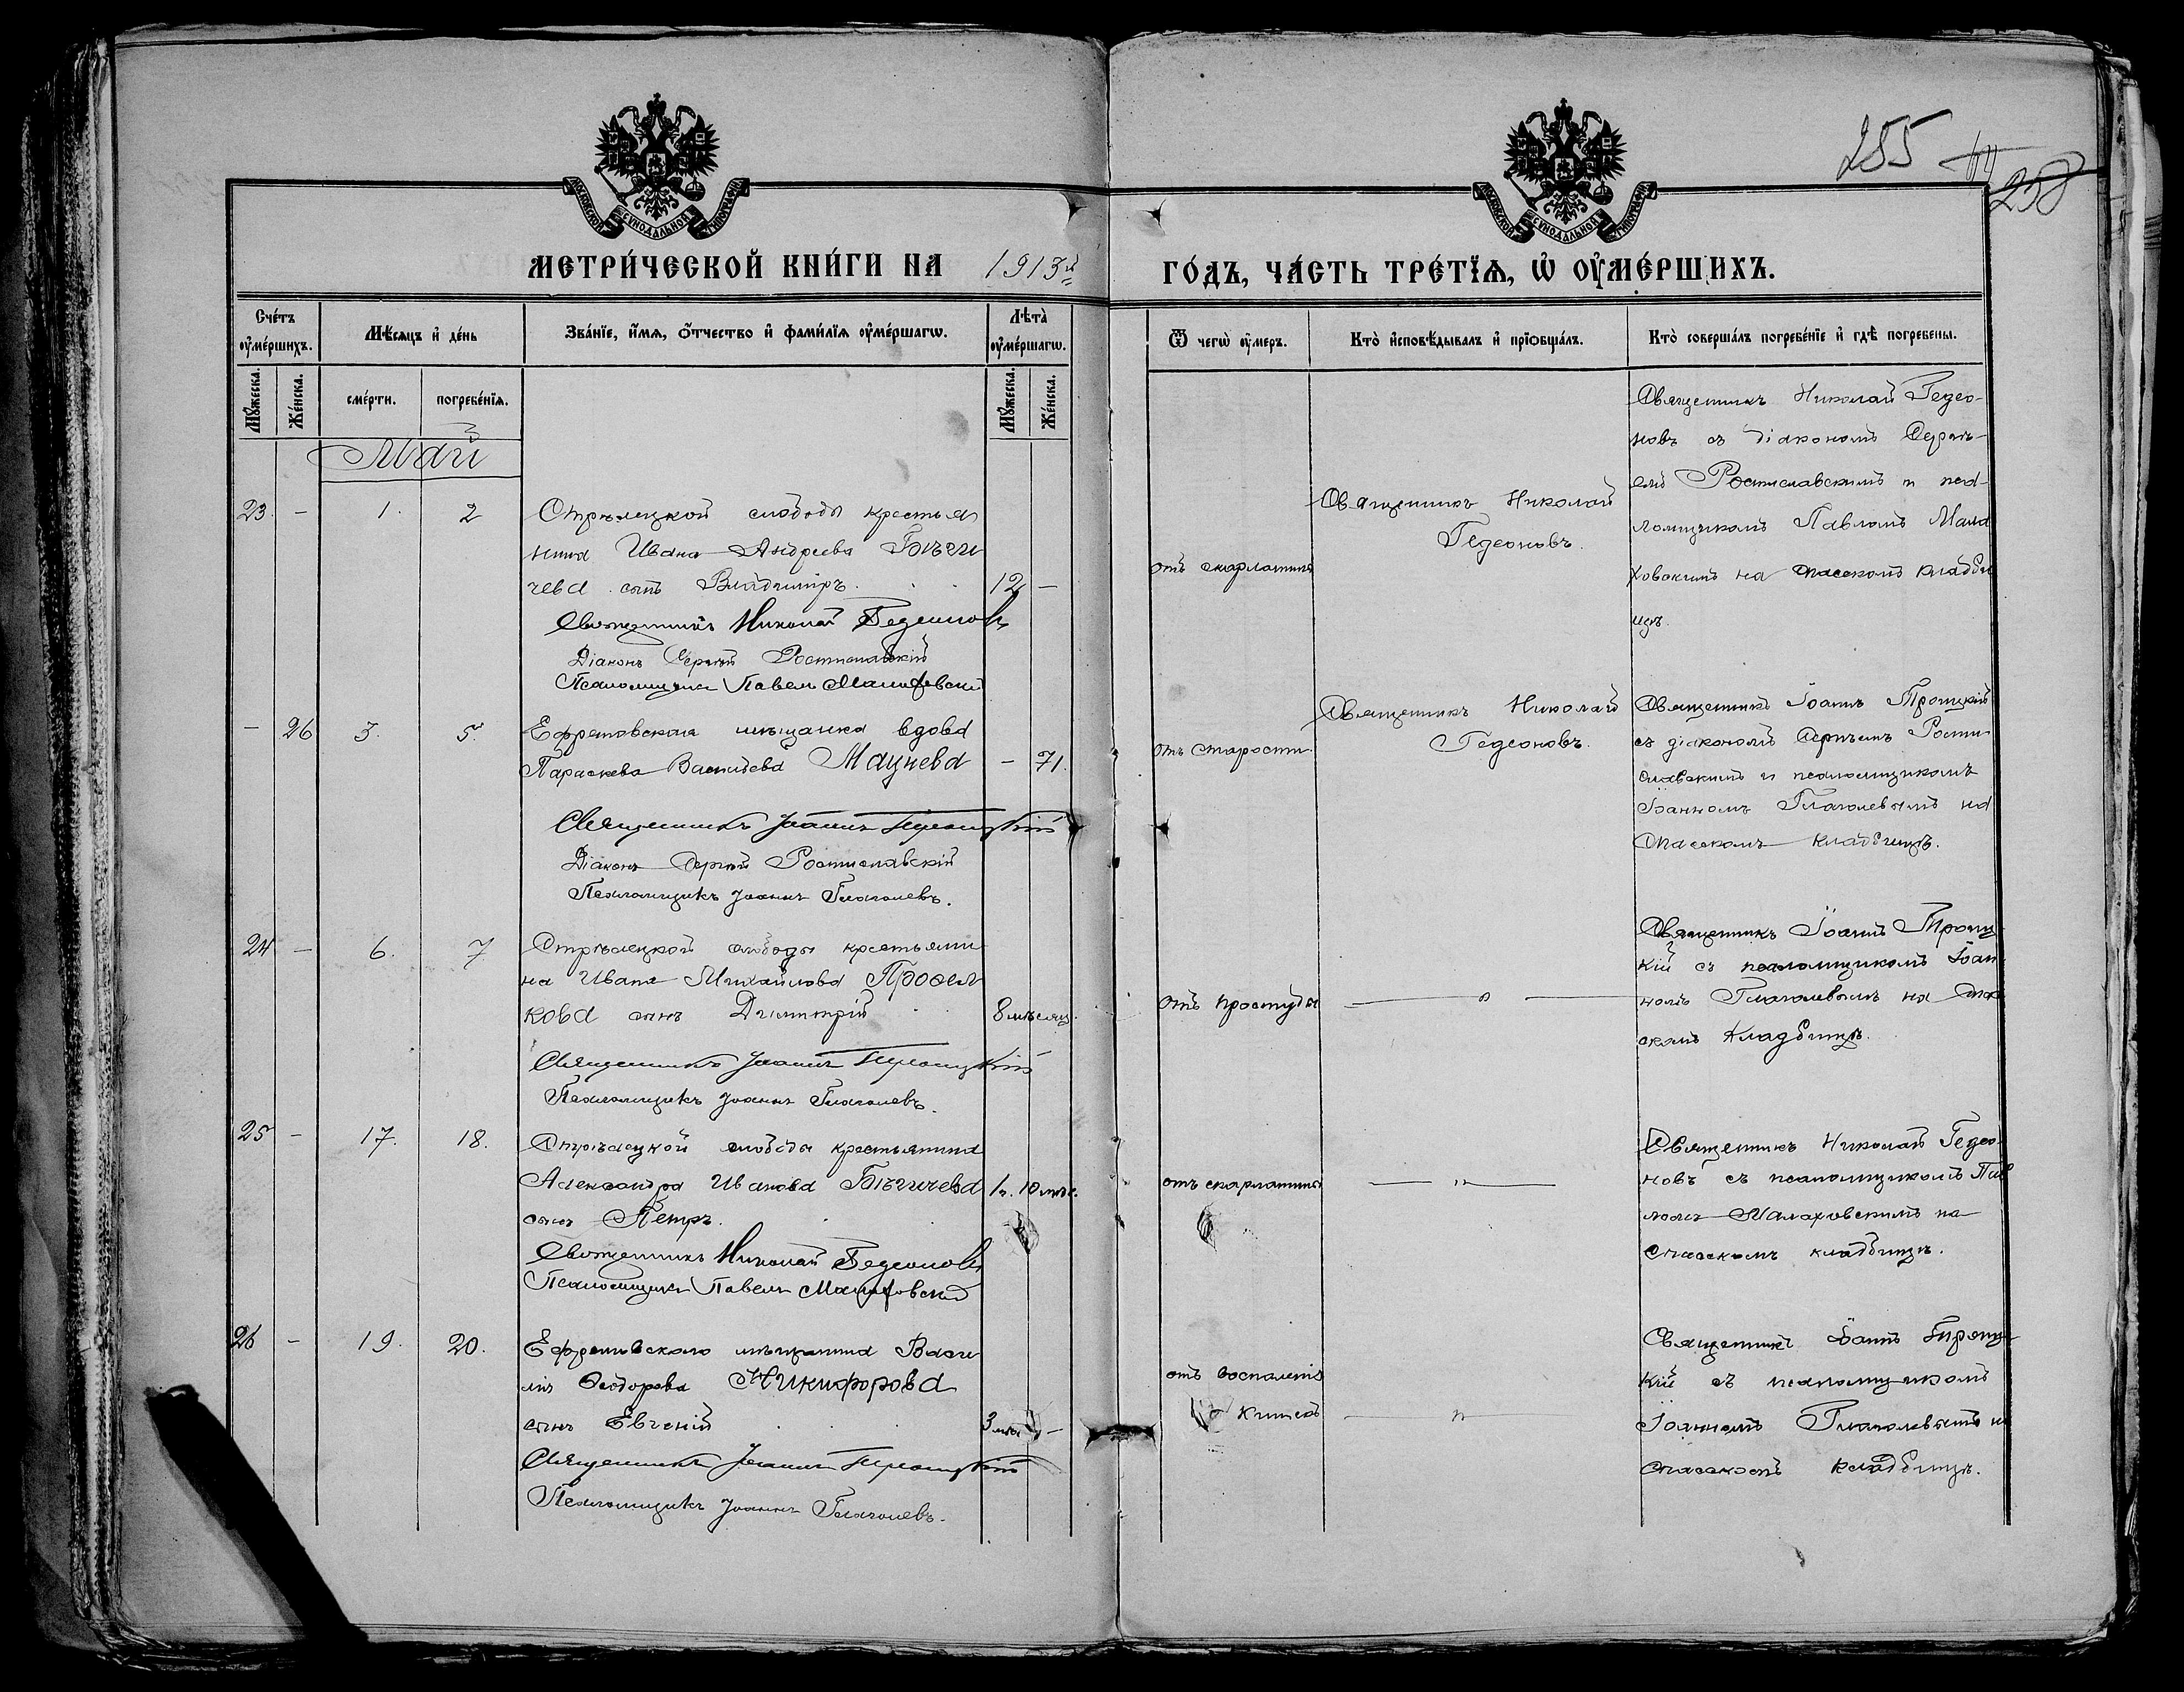 255
258
МОСКОВСКОЙ СѴНОДАЛЬНОЙ ТИПОГРАФІИ
МОСКОВСКОЙ СѴНОДАЛЬНОЙ ТИПОГРАФІИ
МЕТРИ́ЧЕСКОЙ КНИ́ГИ НА 1913й
ГО́ДЪ, ЧА́СТЬ ТРЕ́ТЇѦ, Ѡ҆ ОУ҆МЕ́РШИХЪ.
Сче́тъ оу҆ме́ршихъ.
Мѣ́сяцъ и҆ де́нь
Зва́нїе, и҆́мѧ, ѻ҆́тчество и҆ фами́лїѧ оу҆ме́ршагѡ.
Лѣ́та оу҆ме́ршагѡ.
Ѿ чегѡ̀ оу҆́меръ.
Кто̀ и҆сповѣ́дывалъ и҆ прїѡбща́лъ.
Кто̀ соверша́лъ погребе́нїе и҆ гдѣ̀ погребены.
Мꙋ́жеска.
Же́нска.
сме́рти.
погребе́нїѧ.
Мꙋ́жеска.
Же́нска.
Май
23. - 1. 2
Стрѣлецкой слободы крестья
нина Ивана Андреева Бѣги
чева сынъ Владимиръ. 12 -
Священникъ Николай Гедеоновъ
Діаконъ Сергій Ростиславскій
Псаломщикъ Павелъ Малаховскій
отъ скарлатины
Священникъ Николай
Гедеоновъ.
Священникъ Николай Гедео-
новъ съ діакономъ Сергѣ-
емъ Ростиславскимъ и пса-
ломщикомъ Павломъ Мала
ховскимъ на Спасскомъ кладби
щѣ.
- 26 3. 5.
Ефремовская мѣщанка вдова
Параскева Васильева Маунева - 71.
Священникъ Іоаннъ Троицкій
Діаконъ Сергій Ростиславскій
Псаломщикъ Іоаннъ Глаголевъ.
отъ старости
Священникъ Николай
Гедеоновъ.
Священникъ Іоаннъ Троицкій
съ діакономъ Сергѣемъ Рости
славскимъ и псаломщикомъ
Іоанномъ Глаголевымъ на
Спасскомъ кладбищѣ.
24 - 6. 7
Стрѣлецкой слободы крестьяни
на Ивана Михайлова Просел
кова сынъ Димитрій 8 мѣсяц.
Священникъ Іоаннъ Троицкій
Псаломщикъ Іоаннъ Глаголевъ.
отъ простуды
— „ —
Священникъ Іоаннъ Троиц
кій съ псаломщикомъ Іоан
номъ Глаголевымъ на Спас
скомъ Кладбищѣ.
25 - 17. 18.
Стрѣлецкой слободы крестьянина
Александра Иванова Бѣгичева 1 г. 10 мѣс.
сынъ Петръ.
Священникъ Николай Гедеоновъ
Псаломщикъ Павелъ Малаховскій
отъ скарлатины
— „ —
Священникъ Николай Гедео-
новъ съ псаломщикомъ Пав
ломъ Малаховскимъ на
Спасскомъ кладбищѣ.
26 - 19. 20.
Ефремовскаго мѣщанина Васи
лія Ѳеодорова Никифорова
сынъ Евгеній 3 мѣс. -
Священникъ Іоаннъ Троицкій
Псаломщикъ Іоаннъ Глаголевъ.
отъ воспаленія
кишекъ
— „ —
Священникъ Іоаннъ Троиц-
кій съ псаломщикомъ
Іоанномъ Глаголевымъ на
Спасскомъ кладбищѣ.